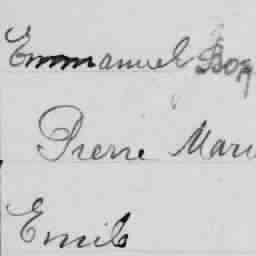 Emmanuel Boz
Pierre Marie
Emile